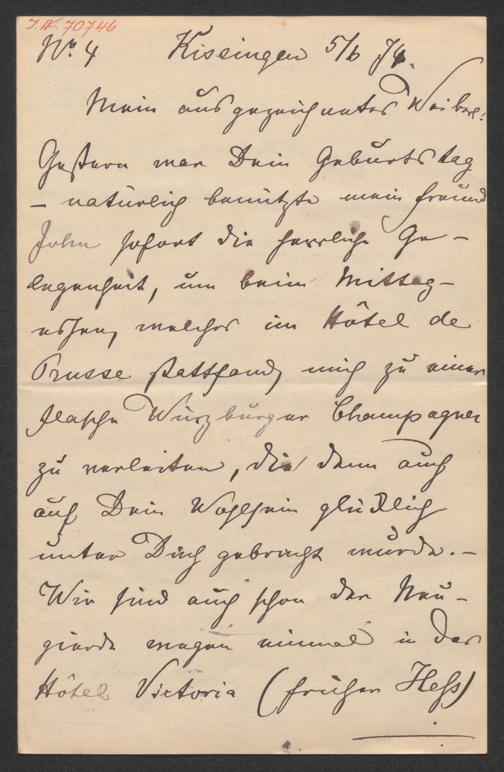 I.N. 70746
No. 4 Kissingen 5/6 74.
Mein ausgezeichnetes Weiberl!
Gestern war Dein Geburtstag
– natürlich benützte mein Freund
John sofort die herrliche Ge-
legenheit, um beim Mittag-
essen, welches im Hôtel de
Prusse stattfand, mich zu einer
Flasche Würzburger Champagner
zu verleiten, die denn auch
auf Dein Wohlsein glücklich
unter Dach gebracht wurde. –
Wir sind auch schon der Neu-
gierde wegen einmal in das
Hôtel Victoria (früher Hess)